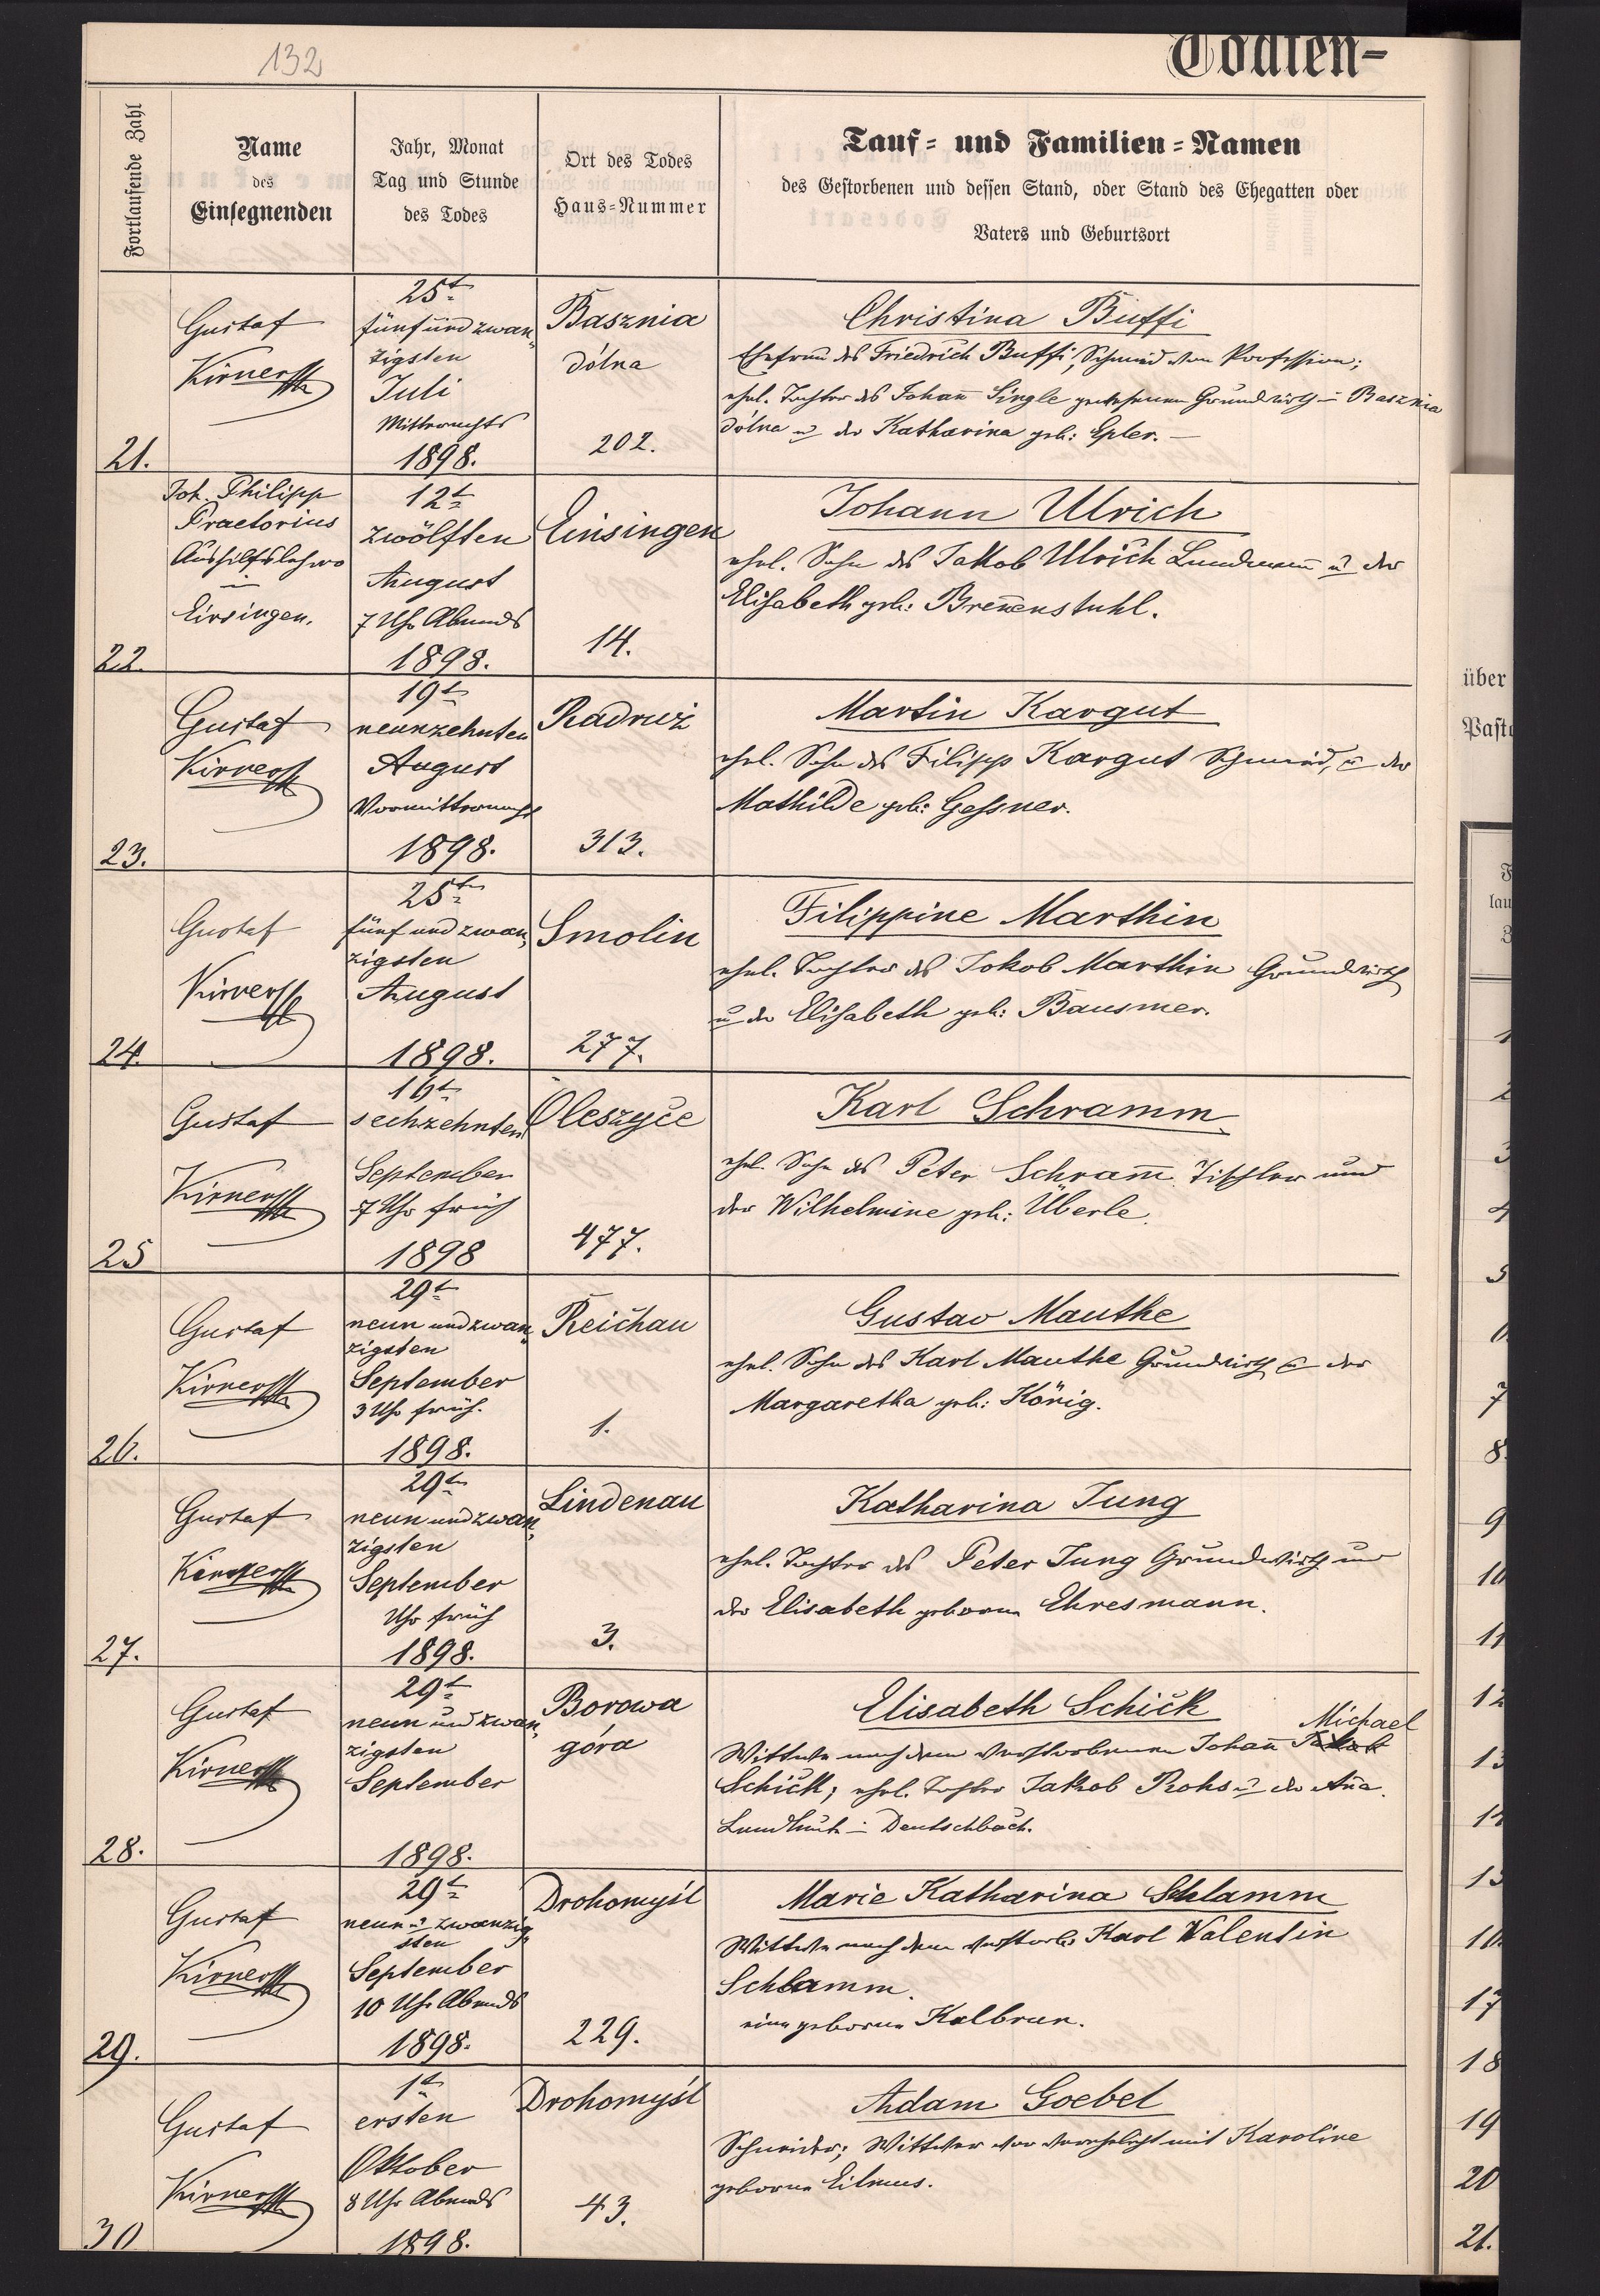 132
Todten-
Fortlaufende Zahl
Name
des
Einsegnenden
Jahr, Monat
Tag und Stunde
des Todes
Ort des Todes
Haus-Nummer
Tauf- und Familien-Namen
des Gestorbenen und dessen Stand, oder Stand des Ehegatten oder
Vaters und Geburtsort
21.
Gustaf
25t
fünf und zwan,,
zigsten
Juli
Mitternachts
1898.
Basznia
dólna
202.
Christina Buffi
Ehefrau des Friedrich Buffi, Schmied von Profession;
ehel. Tochter des Johan̅ Single gewesenen Grundwirth in Basznia
dólna u der Katharina geb: Epler. —
22.
Joh. Philipp
Praetorius
Aushilfslehrer
in
Einsingen.
12t
zwölften
August
7 Uhr Abends
1898.
Einsingen
14.
Johann Ulrich
ehel. Sohn des Jakob Ulrich Landmann u der
Elisabeth geb: Bren̅enstuhl.
23.
Gustaf
19t
neunzehnten
August
1898.
Radruż
313.
Martin Kargut
ehel. Sohn des Filipp Kargut Schmied, u der
Mathilde geb: Gessner.
24.
Gustaf
25t
fünf und zwan,,
zigsten
August
1898.
Smolin
277.
Filippine Marthin
ehel. Tochter des Jakob Marthin Grundwirth
u der Elisabeth geb: Bausmer.
25
Gustaf
16t
sechzehnten
September
7 Uhr früh
1898
Oleszyce
477.
Karl Schramm
ehel. Sohn des Peter Schram̅ Tischler und
der Wilhelmine geb: Überle.
26.
Gustaf
29t
neun und zwan,,
zigsten
September
3 Uhr früh.
1898.
Reichau
1.
Gustav Mauthe
ehel. Sohn des Karl Mauthe Grundwirth u der
Margaretha geb: König.
27.
Gustaf
29t
neun und zwan,,
zigsten
September
Uhr früh
1898.
Lindenau
3.
Katharina Jung
ehel. Tochter des Peter Jung Grundwirth und
der Elisabeth geborne Ehresmann.
28.
Gustaf
29t
neun und zwan,,
zigsten
September
1898.
Borowa
góra
Elisabeth Schick
Michael
Wittwe nach dem verstorbenen Johan̅ Jakob
Schick; ehel. Tochter Jakob Rohs u der An̅a.
Landleute in Deutschbach.
29.
Gustaf
29t
neun u zwanzig,,
sten
September
10 Uhr Abends
1898.
Drohomyśl
229.
Marie Katharina Schlamm
Wittwe nach dem verstorb: Karl Valentin
Schlamm.
eine geborne Kalbrun.
30
Gustaf
1t
ersten
Oktober
8 Uhr Abends
1898.
Drohomyśl
43.
Adam Goebel
Schneider; Wittwer vor verehelicht mit Karoline
geborne Eilmus.
über
9
10
11
12
17
18
19
20
21.